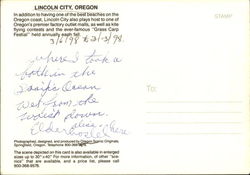 LINCOLN CITY, OREGON
In addition to having one of the best beaches on the
Oregon coast, Lincoln City also plays host to one of
Oregon's premier factory outlet malls, as well as kite
flying contests and the ever-famous "Grass Carp
Festival" held annually each fall.
STAMP
3/6/98 to 3/3/98.
where I took a
bath in the
Pacific Ocean
wet from the
waist down.
TO:
Photographed, designed, and produced by Oregon Scenic Originals,
Springfield, Oregon. Telephone 800-368-9576.
The scene depicted on this card is also available in enlarged
sizes up to 30" x 40". For more information, of other "sce-
nics" that are available, and a price list, please call
800-368-9576.